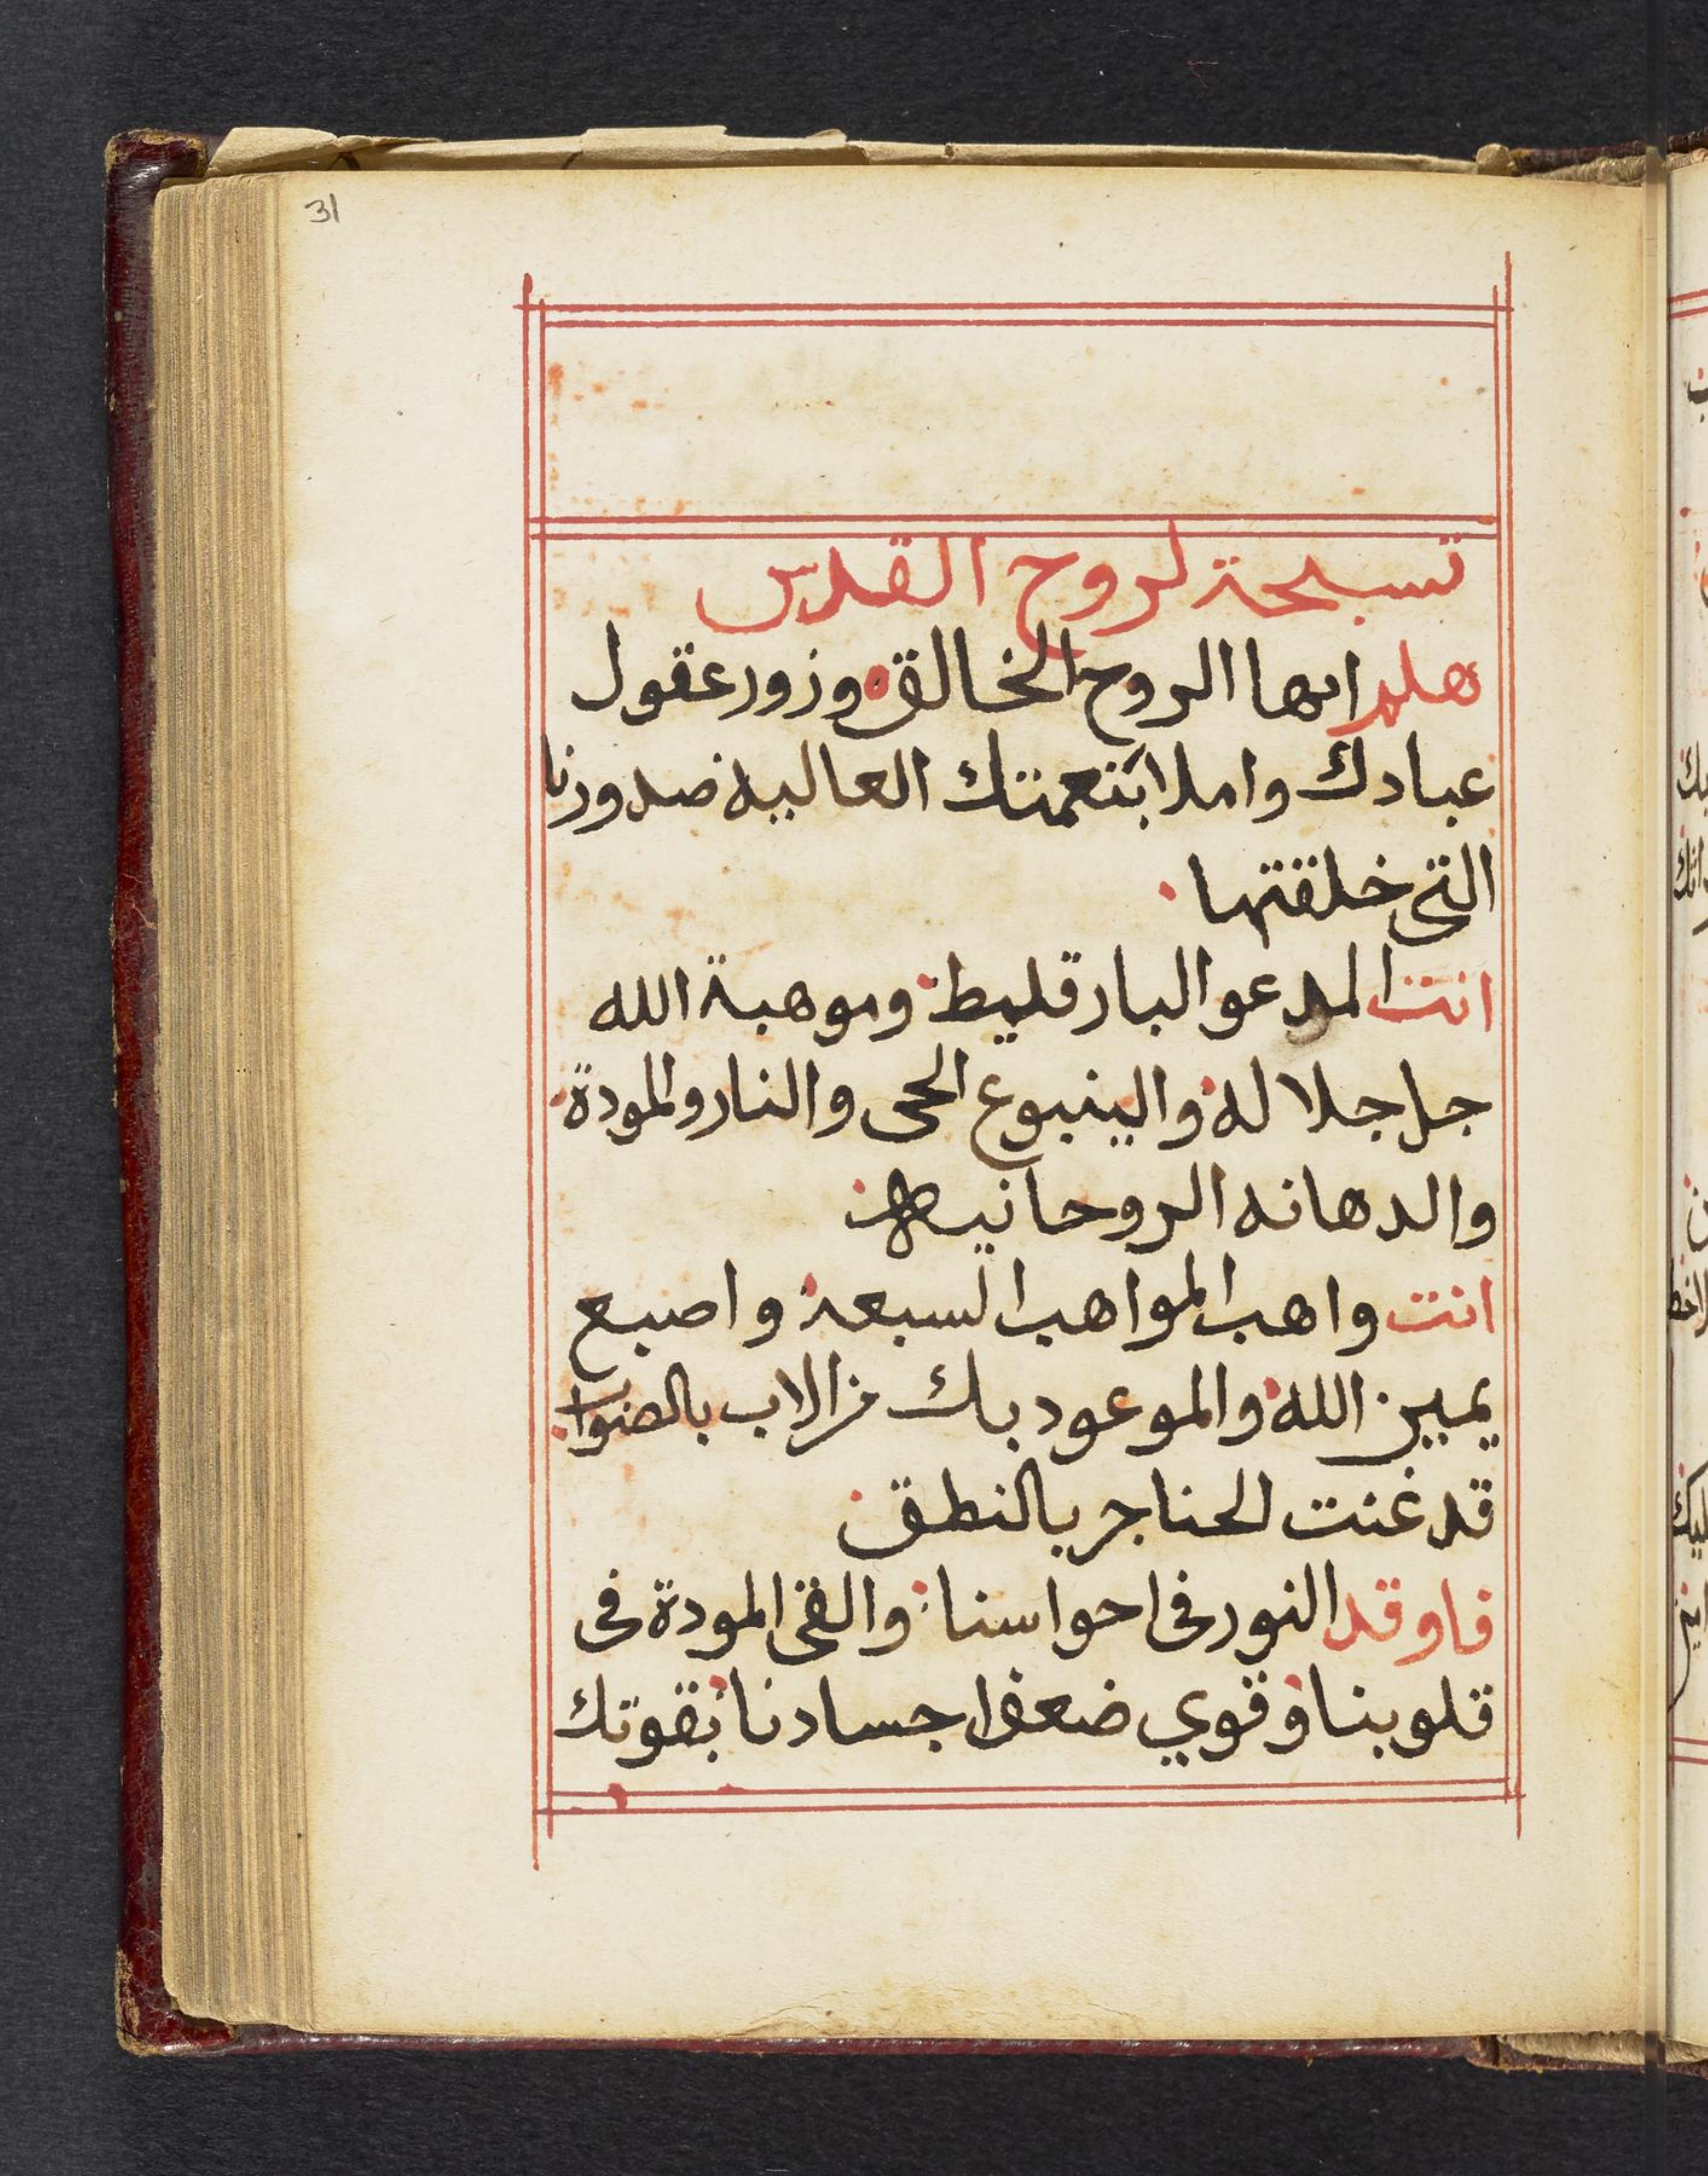 31
تسبحة لروح القدس
هلم ايها الروح الخالق وزور عقول
عبادك واملا بنعمتك العاليه صدورنا
التي خلقتها
انت المدعو البارقليط وموهبة الله
جل جلاله والينبوع الحى والنار والمودة
والدهانه الروحانيه
انت واهب المواهب السبعة واصبع
يمين الله والموعود بك من الاب بالصواب
قد غنت الحناجر بالنطق
فاوقد النور فى احواسنا والقى المودة فى
قلوبنا وقوي ضعف اجسادنا بقوتك